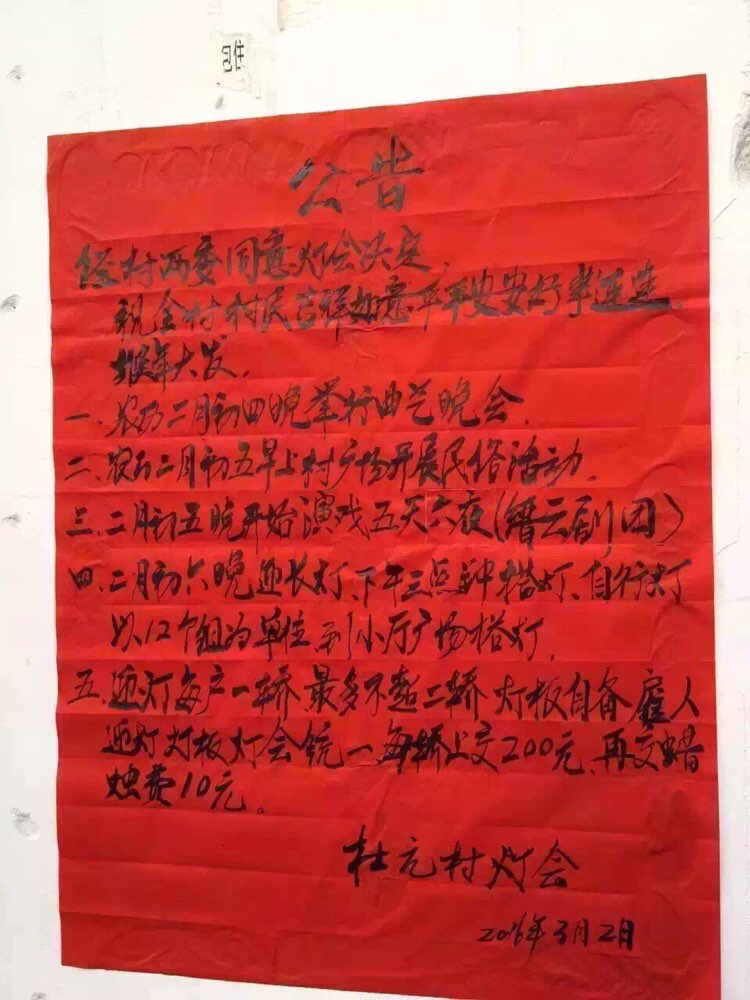 包住
公告
经村两委同意灯会决定,
祝全村村民吉祥如意平平安安好事连连
猴年大发.
一、农历二月初四晚举行曲艺晚会.
二、农历二月初五早上村广场开展民俗活动.
三、二月初五晚开始演戏五天六夜(缙云剧团)
四、二月初六晚迎长灯、下午三点钟搭灯、自行灯
以12个组为单位到小厅广场搭灯.
五、迎灯每户一轿最多不超二轿灯板自备雇人
迎灯灯板灯会统一每轿上交200元、再交蜡
烛费10元。
杜元村灯会
2016年3月2日